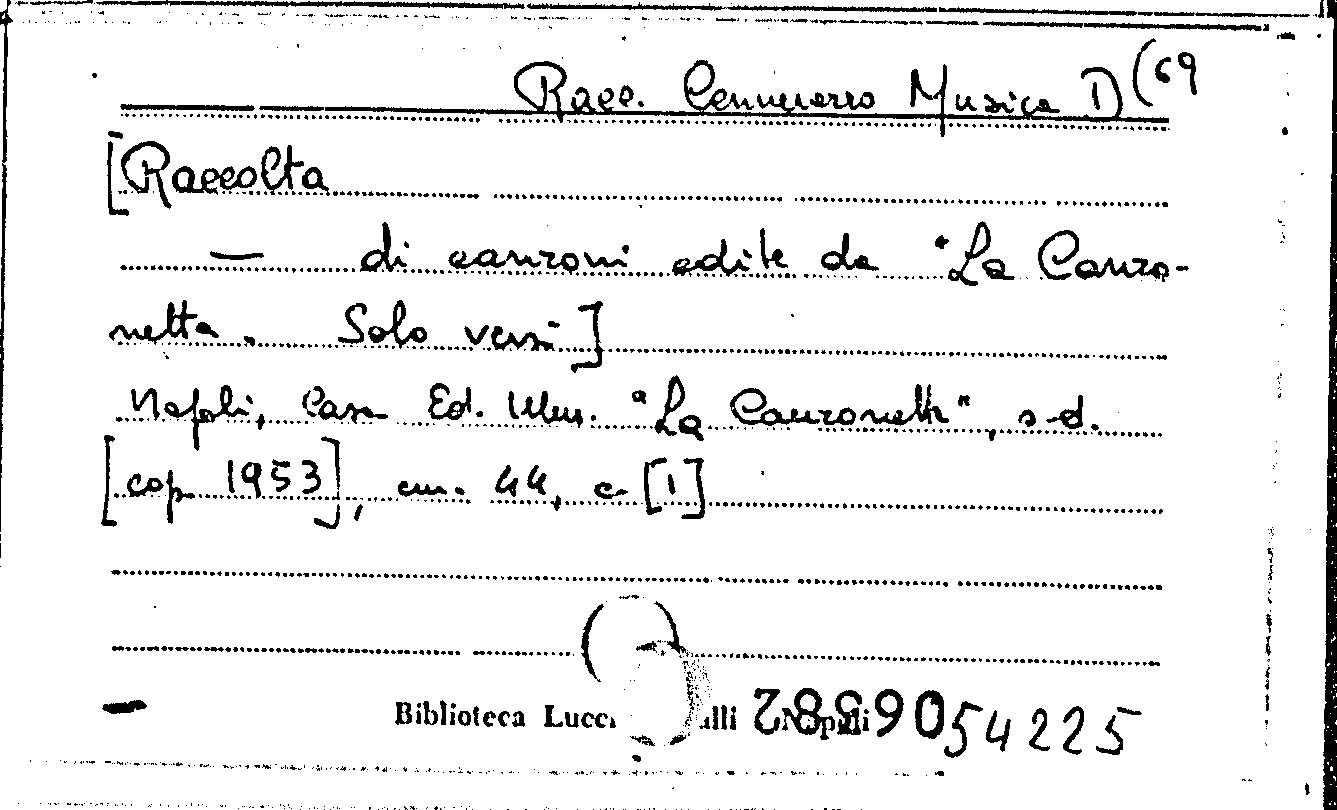 Racc. Cennerazzo Musica D(69
[Raccolta
— di canzoni edite da "La Canzo-
netta. Solo versi]
Napoli, Casa Ed. Mus. "La Canzonetta", s.d.
[cop. 1953], cm. 44, c. [1]
Biblioteca Lucc alli Napoli
54225